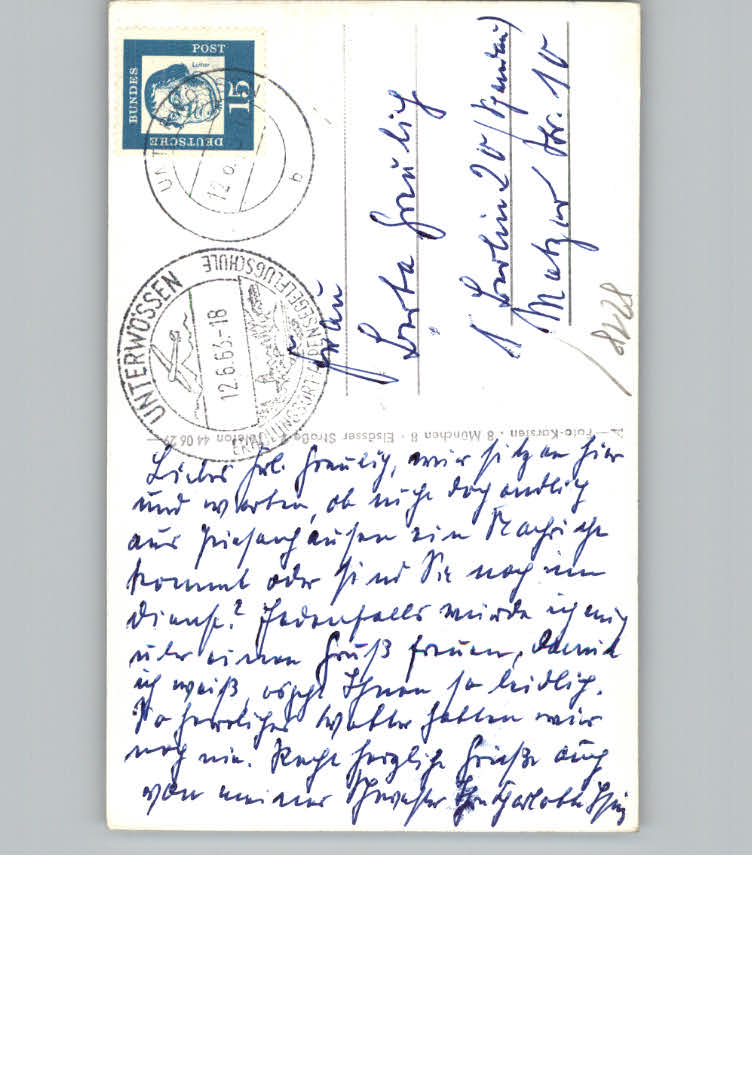 DEUTSCHE
BUNDES
POST
Luther
15
UNTERWÖSSEN
12.6.63-18
b
UNTERWÖSSEN
12.6.63-18
ERHOLUNGSORT ALPENSEGELFLUGSCHULE
Frau
Berta Greulich
1 Berlin 20 (Spandau)
Metzer Str. 10
Foto-Karsten · 8 München 8 · Elsässer Straße · Telefon 44 06 29
Liebes Frl. Greulich, wir sitzen hier
und warten, ob nicht doch endlich
aus eine Nachricht
kommt oder sind Sie noch im
Dienst? Jedenfalls würde ich mich
über einen Gruß freuen, damit
ich weiß, es geht Ihnen so leidlich.
So herrliches Wetter hatten wir
noch nie. Recht herzliche Grüße auch
von meiner Schwester Ihre Charlotte